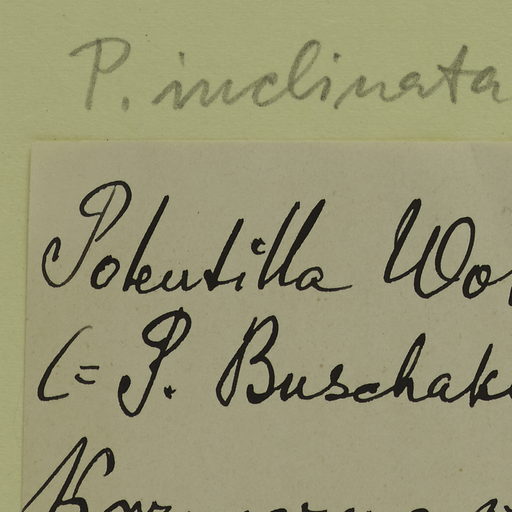 P. inclinata
Potentilla Wo
(= P. Buschak